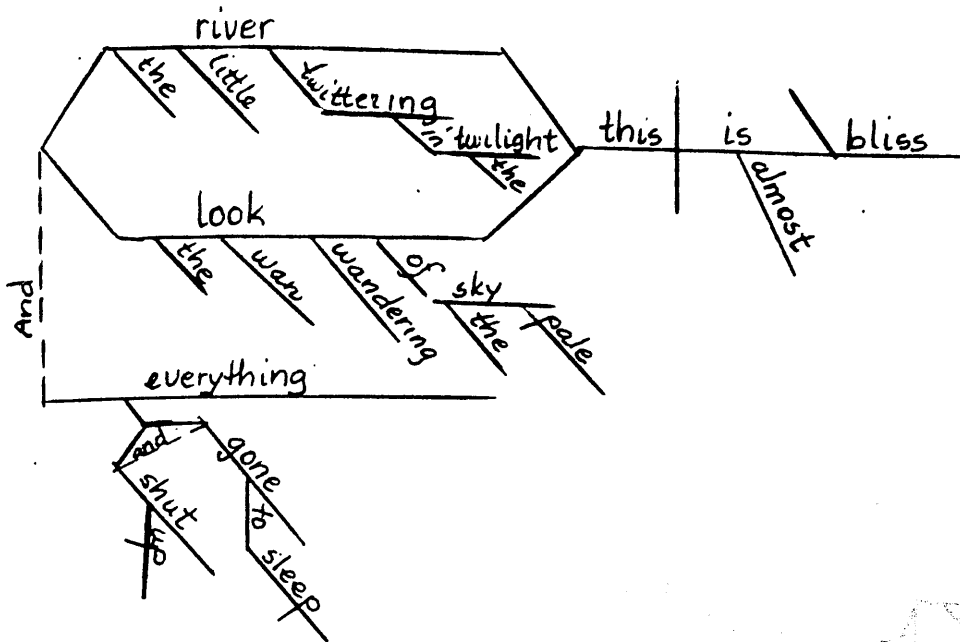 river
the
little
twittering
in
twilight
the
this
is
bliss
almost
look
the
wan
wandering
of
sky
the
pale
And
everything
and
shut
up
gone
to
sleep